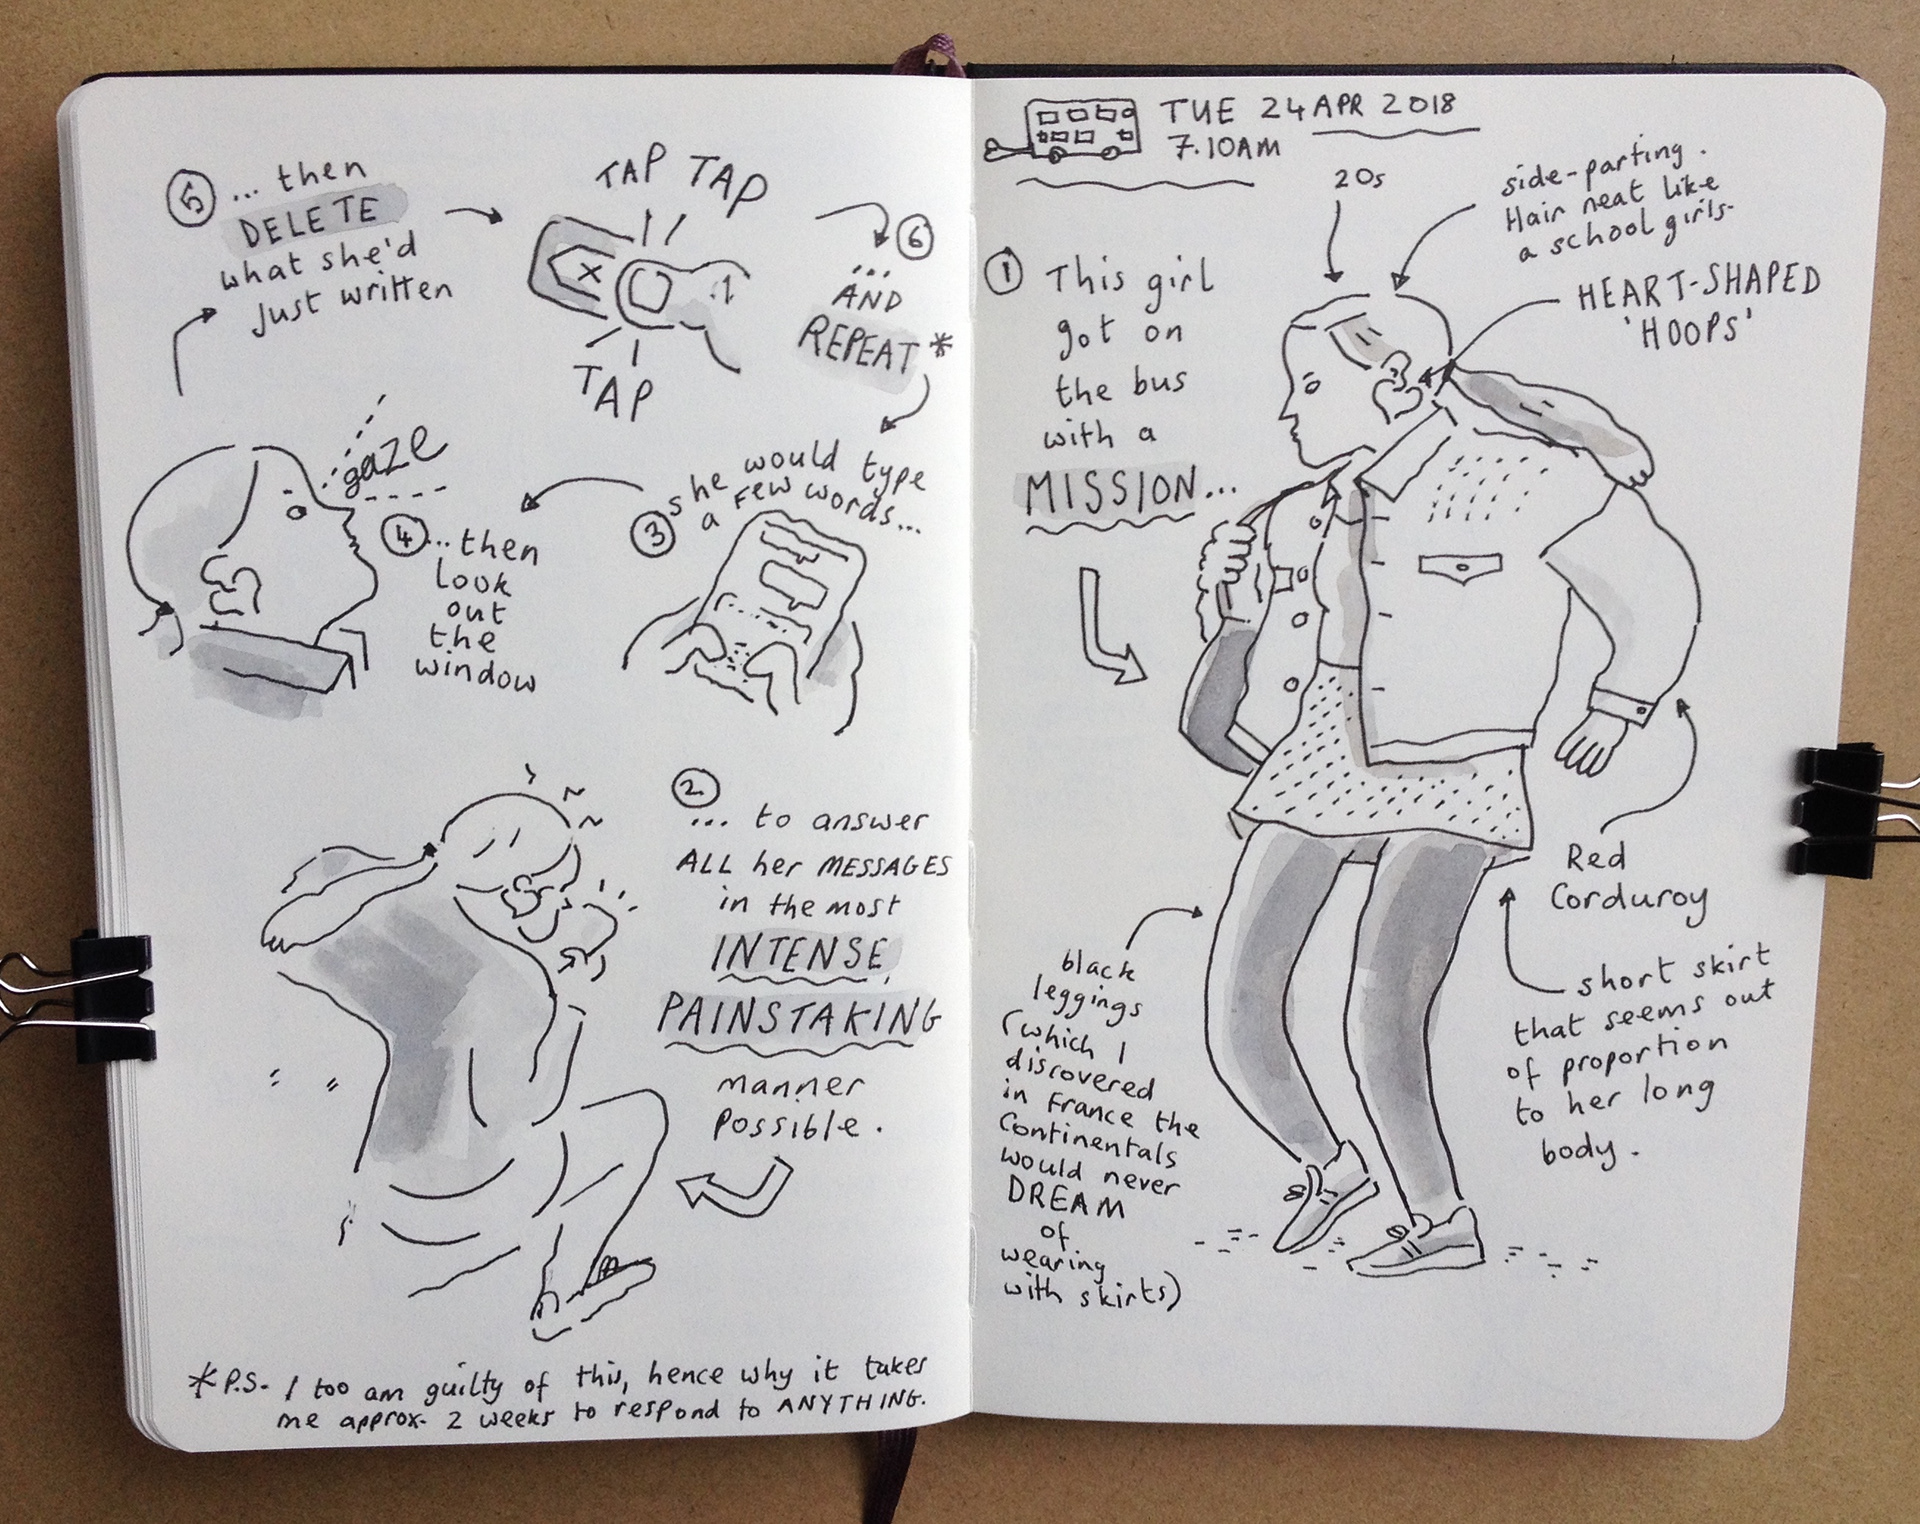 TUE 24 APR 2018
7.10AM
20s
side-parting.
Hair neat like
a school girls.
HEART-SHAPED
'HOOPS'
① This girl
got on
the bus
with a
MISSION...
Red
Corduroy
short skirt
that seems out
of proportion
to her long
body.
black
leggings
(which I
discovered
in France the
Continentals
would never
DREAM
of
wearing
with skirts)
② ... to answer
ALL her MESSAGES
in the most
INTENSE,
PAINSTAKING
manner
possible.
③ she would type
a few words...
④ ...then
look
out
the
window
gaze
⑤ ... then
DELETE
what she'd
just written
TAP TAP
x
TAP
⑥
...
AND
REPEAT*
*P.S. I too am guilty of this, hence why it takes
me approx. 2 weeks to respond to ANYTHING.